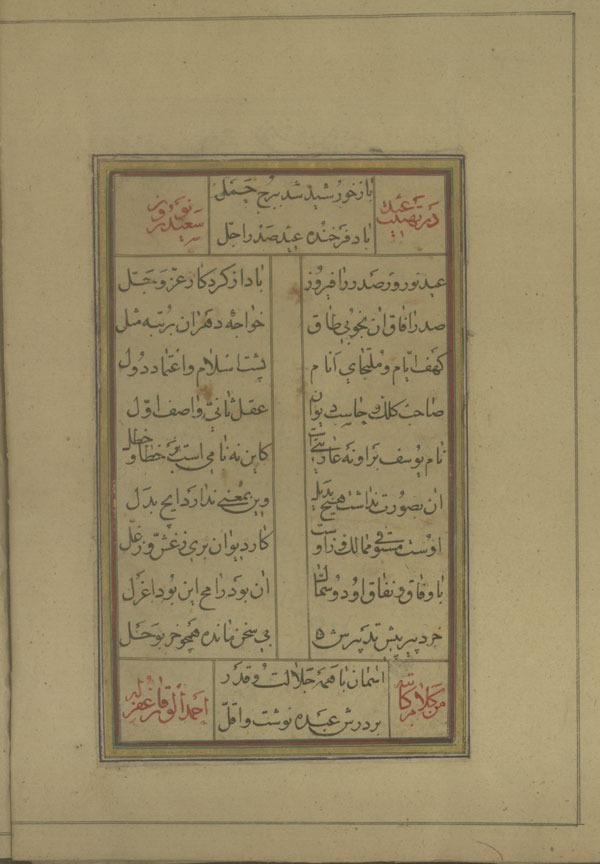 در تهنیت عید
باز خورشید شد ببرج حمل
باد فرخنده عید صدر اجل
نوروز سعید
عید نوروز صدر را فیروز
باد از کردکار عز و جل
صدر افاق ان بخوبی طاق
خواجهٔ دهر ان برتبه مثل
کهف ایام و ملجای انام
پشت اسلام و اعتماد دول
صاحب کلک
عقل ثانی واصف اول
نام یوسف برو نه عاریتست
کاین نه نامی است بر خطا و خطل
ان بصورت نداشت هیچ بدیل
وین بمعنی ندارد ایچ بدل
اوست مستوفی ممالک و زوست
کار دیوان بری ز غش و زغل
با وفاق و نفاق او دو سماک
ان بود رامح این بود اعزل
خرد پیر پیش تدبیرش
بی سخن مانده همچو خر بوحل
من کلام کاتبه
اسمان با همه جلالت و قدر
بر درش عبده نوشت و اقل
احمد الوقار غفر له